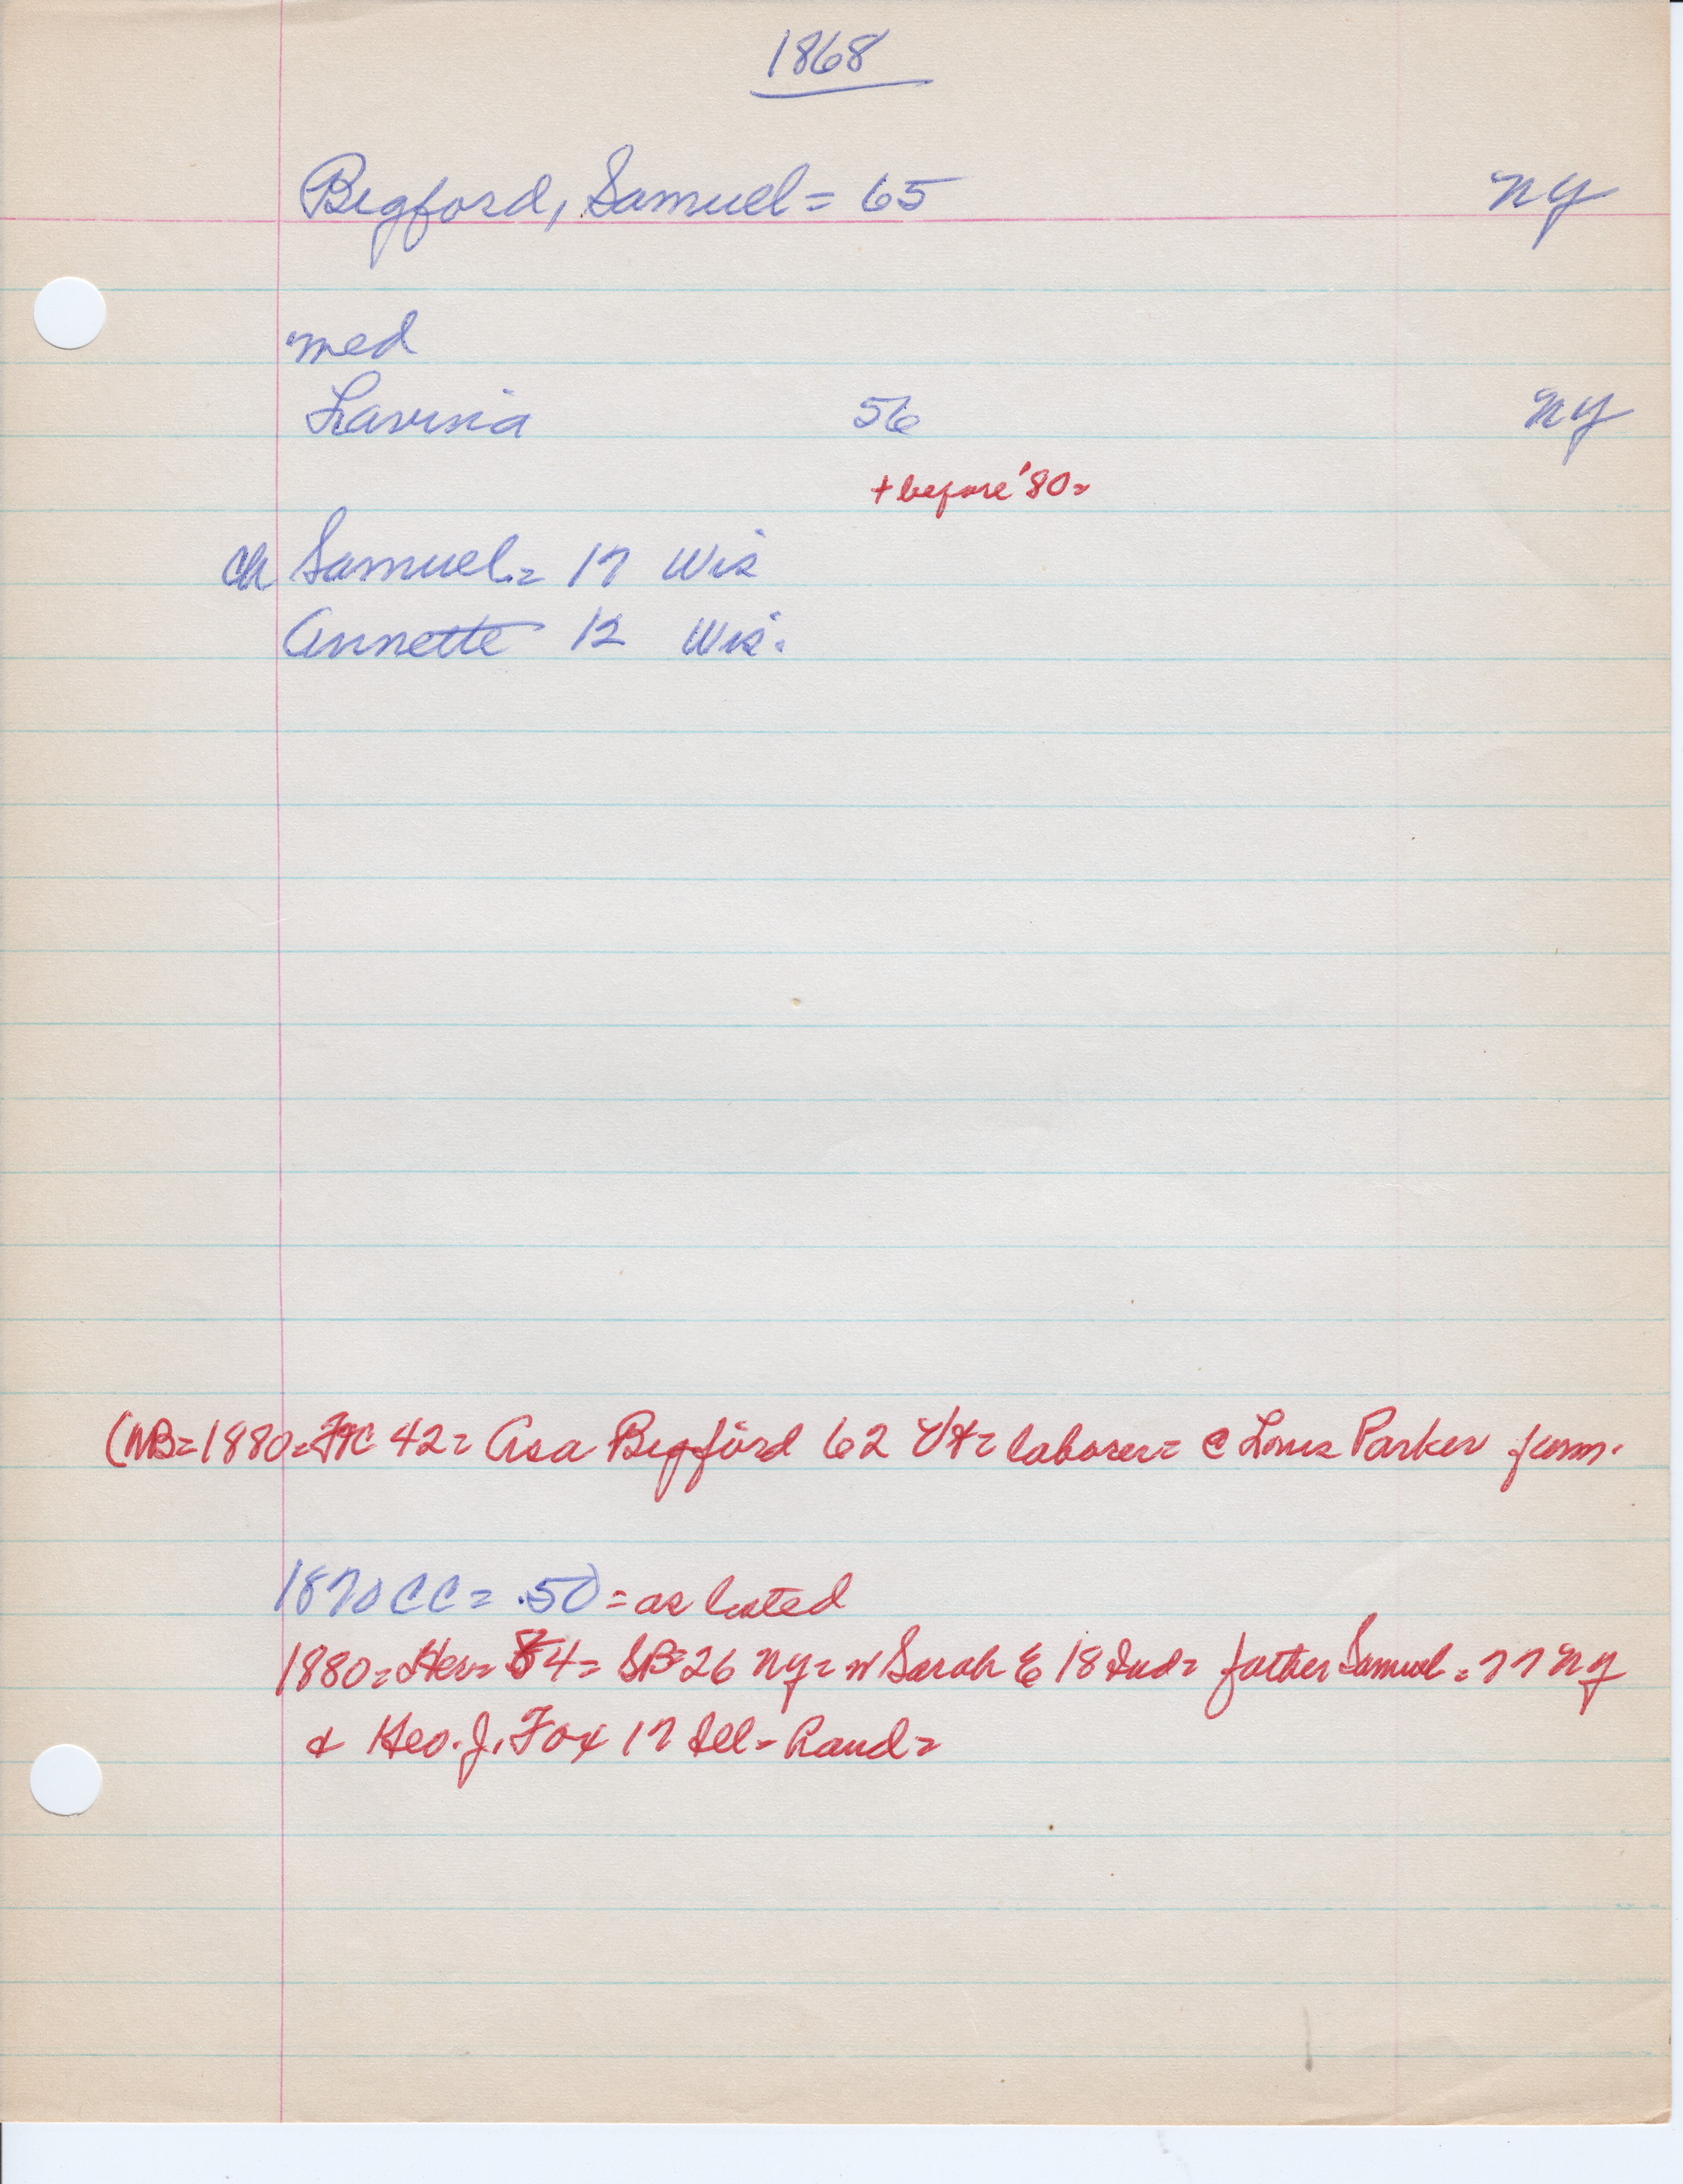 1868
Bigford, Samuel = 65 NY
med
Lavinia 56 NY
+ before '80=
ch Samuel = 17 Wis
Annette 12 Wis.
(NB=1880= 42= Asa Bigford 62 Vt= laborer= @ Louis Parker farm.
1870 CC = .50 = as listed
1880= 4= SB=26 NY= w Sarah E 18 Ind= father Samuel = 77 NY
& Geo. J. Fox 17 Ill - hand=